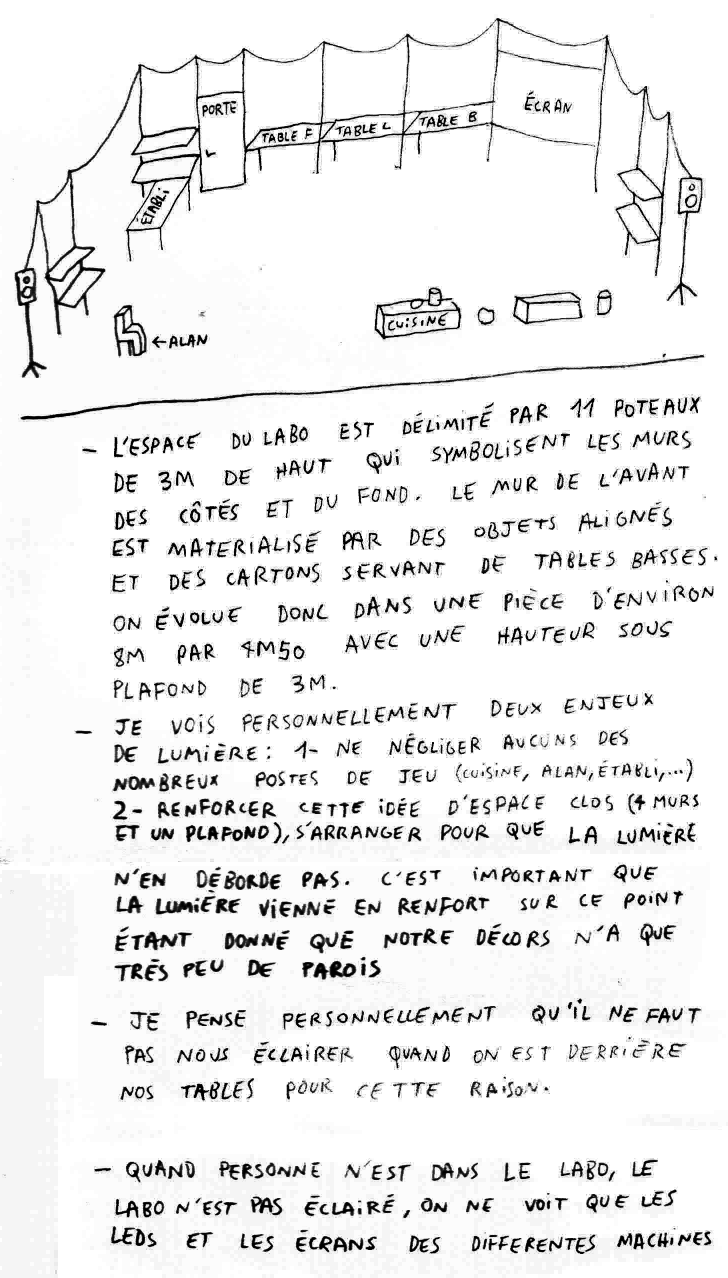 PORTE
ÉCRAN
TABLE F
TABLE L
TABLE B
ÉTABLI
CUISINE
←ALAN
- L'ESPACE DU LABO EST DÉLIMITÉ PAR 11 POTEAUX
DE 3M DE HAUT QUI SYMBOLISENT LES MURS
DES CÔTÉS ET DU FOND. LE MUR DE L'AVANT
EST MATERIALISÉ PAR DES OBJETS ALIGNÉS
ET DES CARTONS SERVANT DE TABLES BASSES.
ON ÉVOLUE DONC DANS UNE PIÈCE D'ENVIRON
8M PAR 4M50 AVEC UNE HAUTEUR SOUS
PLAFOND DE 3M.
- JE VOIS PERSONNELLEMENT DEUX ENJEUX
DE LUMIÈRE: 1- NE NÉGLIGER AUCUNS DES
NOMBREUX POSTES DE JEU (CUISINE, ALAN, ÉTABLI,...)
2- RENFORCER CETTE IDÉE D'ESPACE CLOS (4 MURS
ET UN PLAFOND), S'ARRANGER POUR QUE LA LUMIÈRE
N'EN DÉBORDE PAS. C'EST IMPORTANT QUE
LA LUMIÈRE VIENNE EN RENFORT SUR CE POINT
ÉTANT DONNÉ QUE NOTRE DÉCORS N'A QUE
TRÈS PEU DE PAROIS
- JE PENSE PERSONNELLEMENT QU'IL NE FAUT
PAS NOUS ÉCLAIRER QUAND ON EST DERRIÈRE
NOS TABLES POUR CETTE RAISON.
- QUAND PERSONNE N'EST DANS LE LABO, LE
LABO N'EST PAS ÉCLAIRÉ, ON NE VOIT QUE LES
LEDS ET LES ÉCRANS DES DIFFERENTES MACHINES